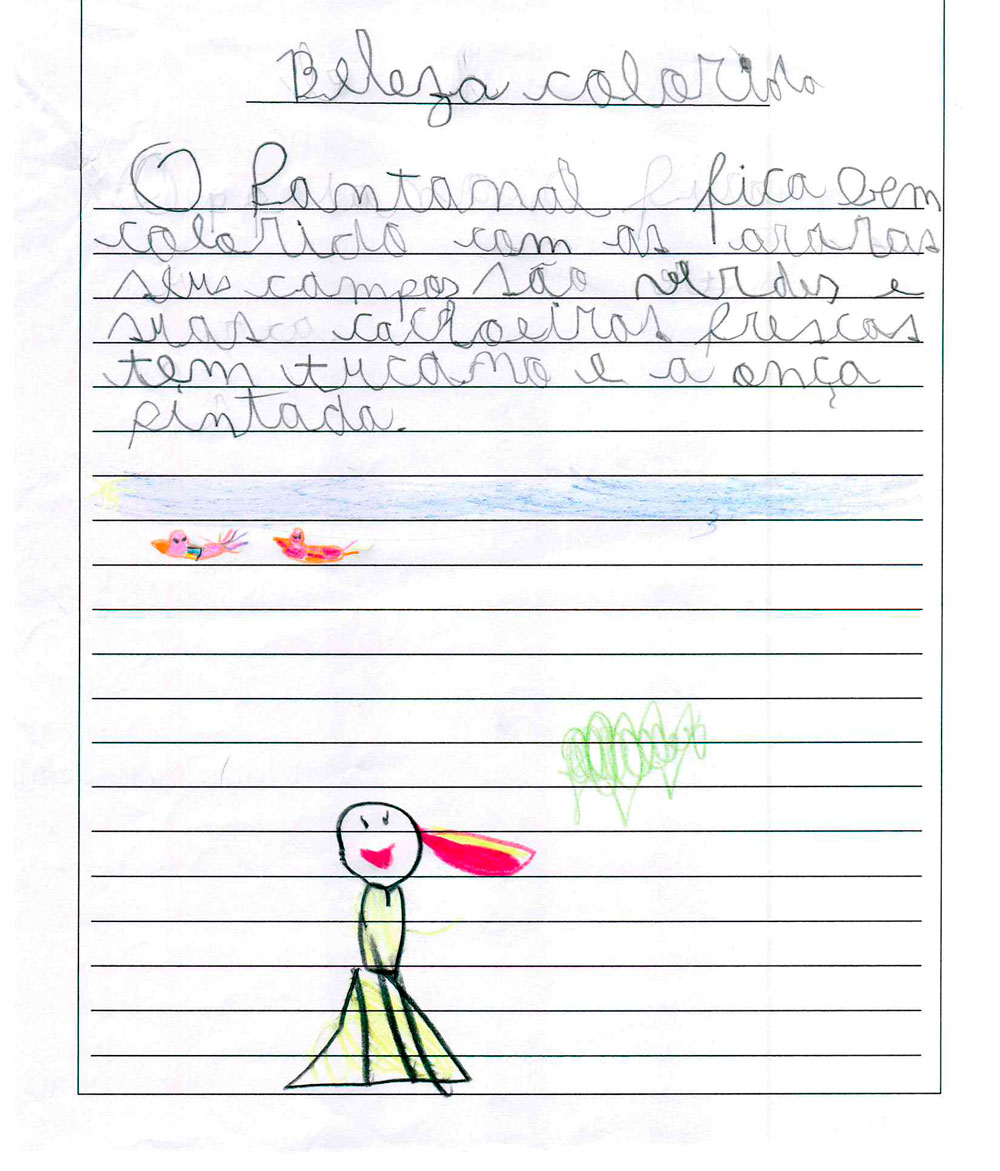 Beleza colorida
O Pantanal fica bem
colorido com as araras
seus campos são verdes e
suas cachoeiras frescas
tem tucano e a onça
pintada.